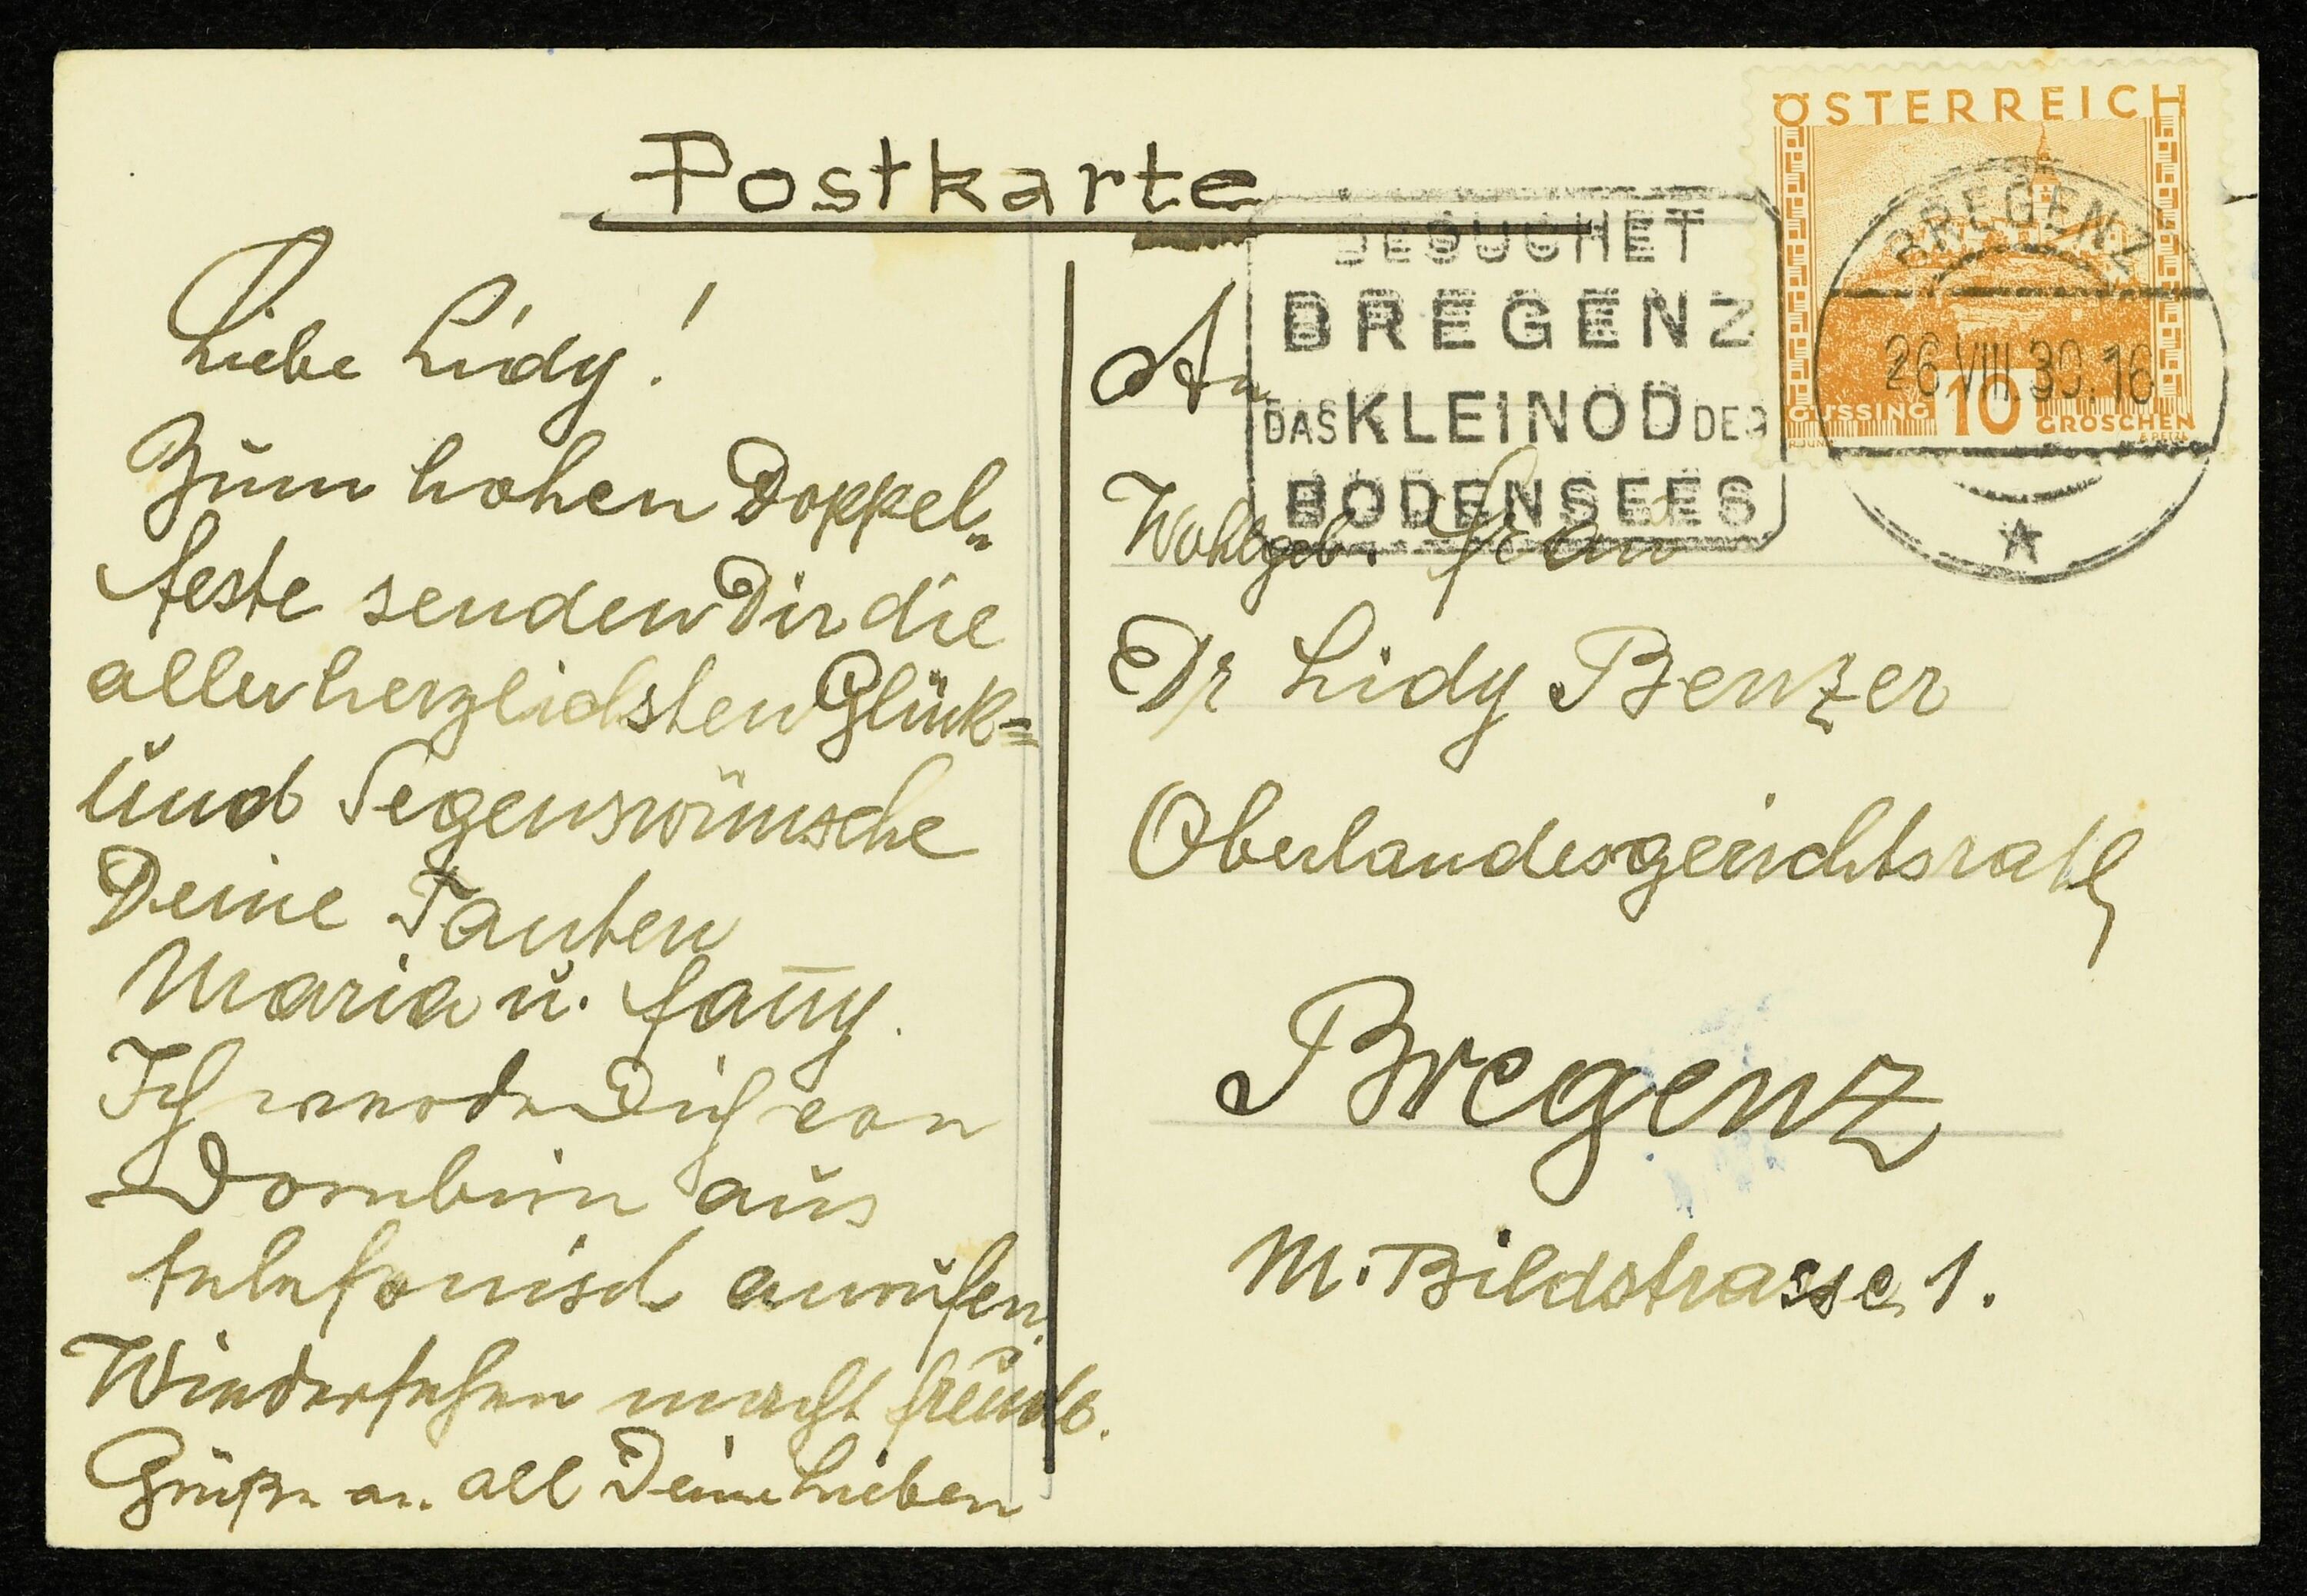 Postkarte
Liebe Lidy!
Zum hohen Doppel=
feste senden Dir die
allerherzlichsten Glück=
und Segenswünsche
Deine Tanten
Maria u. Fan̄y.
Ich werde Dich von
Dornbirn aus
telefonisch anrufen.
Wiedersehen macht Freude.
Grüße an all Deine Lieben
An
Wohlgeb. Frau
Dr Lidy Benzer
Oberlandesgerichtsrath
Bregenz
M. Bildstrasse 1.
BESUCHET
BREGENZ
DAS KLEINOD DES
BODENSEES
ÖSTERREICH
BREGENZ
26.VIII.30.16
GÜSSING 10 GROSCHEN